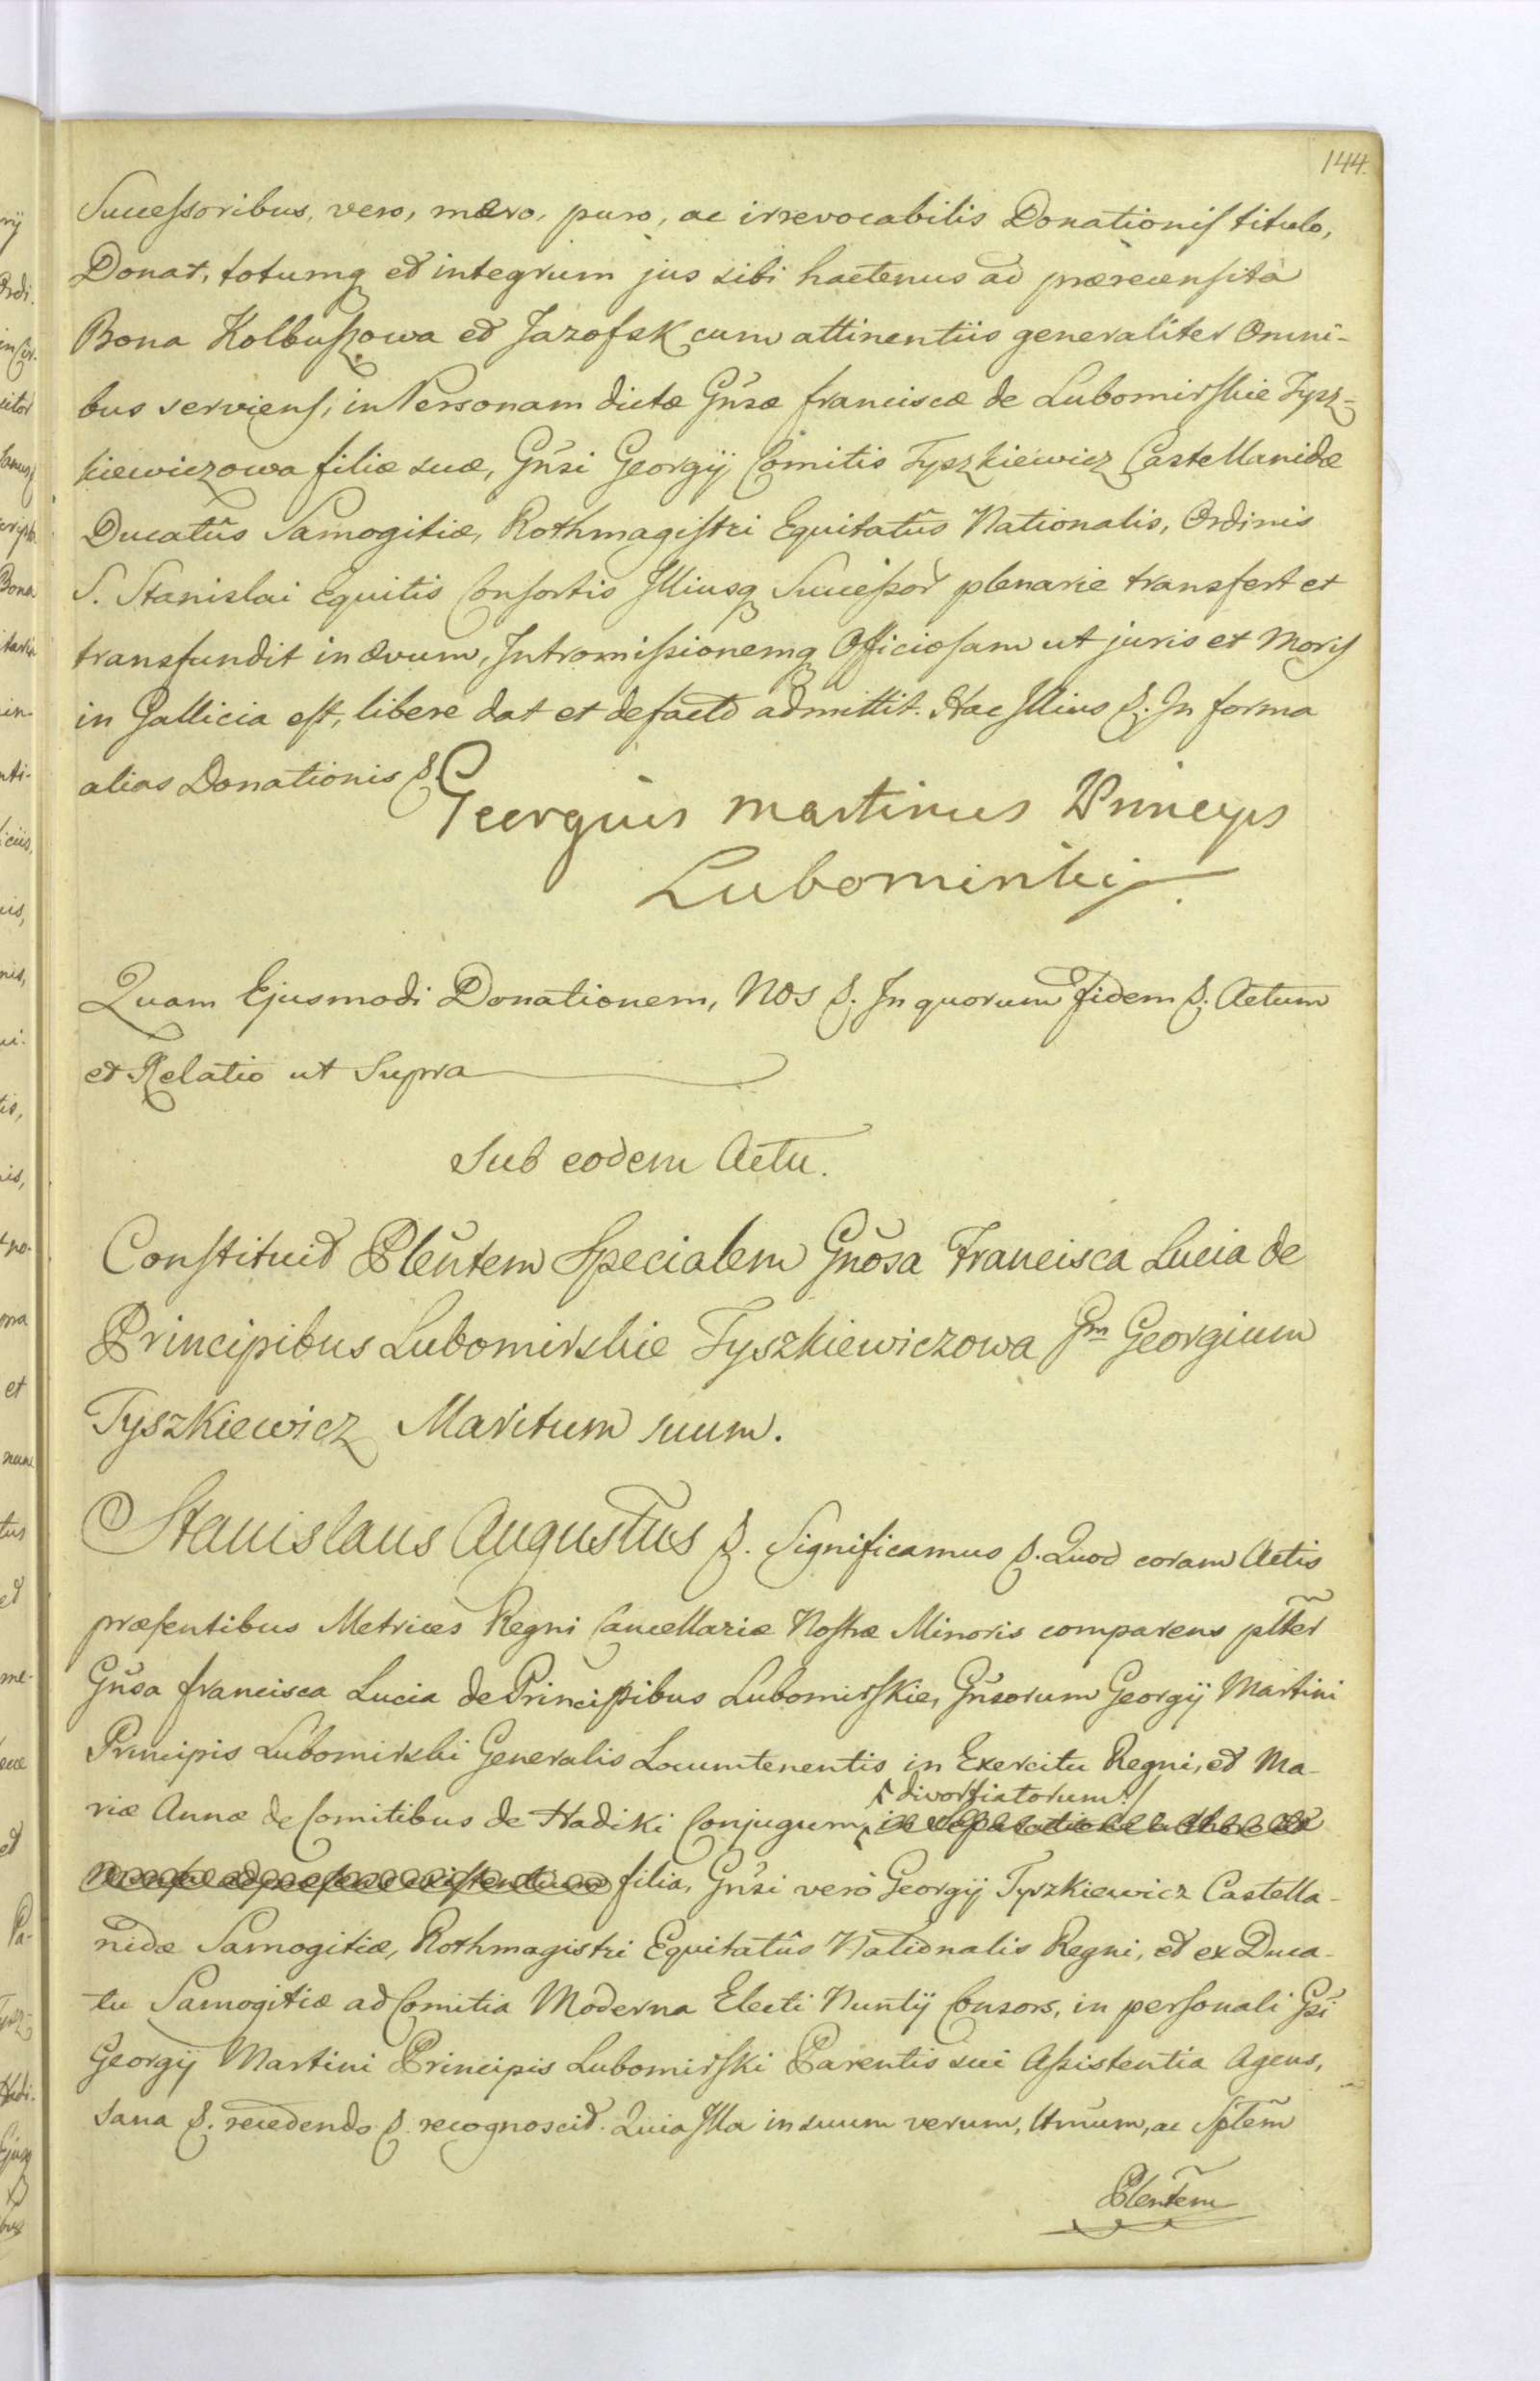 144.
Successoribus, vero, mero, puro, ac irrevocabilis Donationis titulo,
Donat, totumq et integrum jus sibi hactenus ad præcensita
Bona Kolbuszowa et Jarosssk cum attinentiis generaliter Omni-
bus serviens, in Personam dictæ Gńsæ Franciscæ de Lubomirskie Tysz-
kiewiczowa filiæ suæ, Gńsi Georgij Comitis Tyszkiewicz Castellanidæ
Ducatûs Samogitiæ, Rothmagistri Equitatûs Nationalis, Ordinis
S. Stanislai Equitis Consortis Illiusq Successor plenarie transfert et
transfundit in ævum, Intromissionemq Officiosam ut juris et Moris
in Gallicia est, libere dat et defacto admittit. Hac Illius &. In forma
alias Donationis &.
Georgius Martinus Princeps
Lubomirski
Quam Ejusmodi Donationem, Nos &. In quorum Fidem &. Actum
et Relatio ut Supra
Sub eodem Actu.
Constituit Pleñtem Specialem Gñosa Francisca Lucia de
Principibus Lubomirskie Tyszkiewiczowa Gm Georgium
Tyszkiewicz Maritum suum.
Stanislaus Augustus &. Significamus &. Quod coram Actis
præsentibus Metrices Regni Cancellariæ Nostræ Minoris comparens pltter
Gńsa Francisca Lucia de Principibus Lubomirskie, Gńsorum Georgij Martini
Principis Lubomirski Generalis Locumtenentis in Exercitu Regni, et Ma-
divortiatorum
riæ Annæ de Comitibus de Hadiki Conjugum, in separatione a thoro et
ad præsens existentium filia, Gńsi vero Georgij Tyszkiewicz Castella-
nidæ Samogitiæ, Rothmagistri Equitatûs Nationalis Regni, et ex Duca-
tu Samogitiæ ad Comitia Moderna Electi Nuntij Consors, in personali Gsi
Georgij Martini Principis Lubomirski Parentis sui Assistentia Agens,
sana &. recedendo &. recognoscit. Quia Illa in suum verum, Utnum, ac Sptem
Plentem